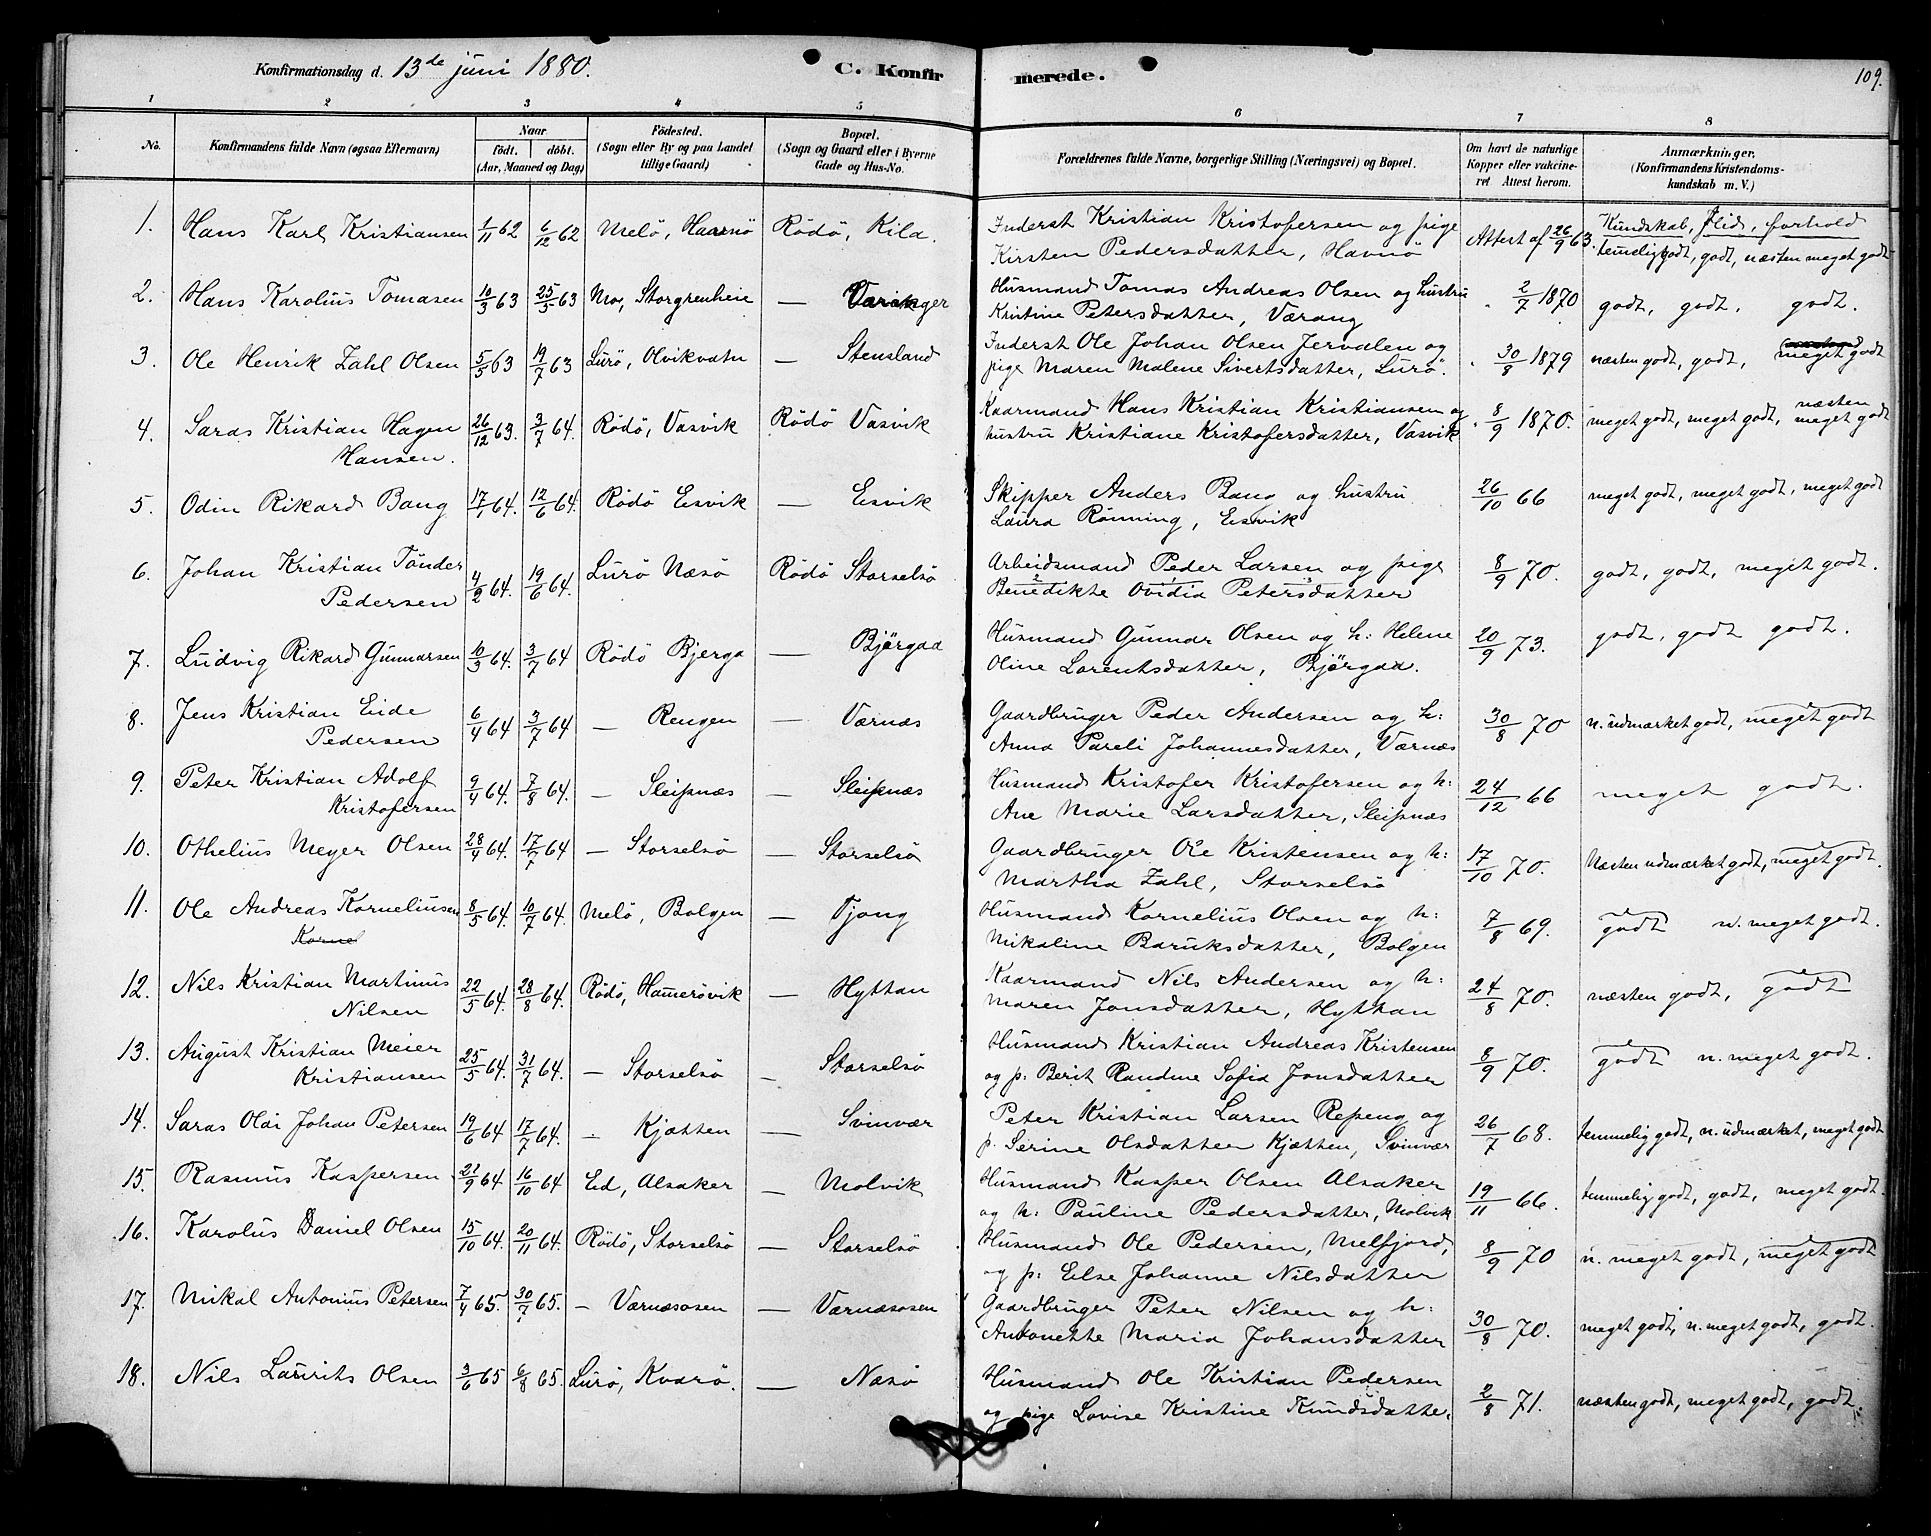 Konfirmationsdag d. 13de juni 1880.
C. Konfirmerede.
109.
1 2 3 4 5 6 7 8
No.
Konfirmandens fulde Navn (ogsaa Efternavn)
Naar
født. døbt.
(Aar, Maaned og Dag)
Fødested.
(Sogn eller By og paa Landet
tillige Gaard)
Bopæl.
(Sogn og Gaard eller i Byerne
Gade og Hus-No.
Forældrenes fulde Navne, borgerlige Stilling (Næringsvei) og Bopæl.
Om havt de naturlige
Kopper eller vakcineret
Attest herom.
Anmærkninger.
(Konfirmandens Kristendomskundskab
m. V.)
1. Hans Karl Kristiansen 1/11 62 6/12 62 Melö, Havnö Rödö, Kila.
Inderst Kristian Kristofersen og pige
Kirsten Pedersdatter, Havnö
Attest af 26/9 63.
Kundskab, flid, forhold
temmelig godt, godt, næsten meget godt
2. Hans Karolius Tomasen 10/3 63 25/5 63 Mo, Storgrenheie — Varanger
Husmand Tomas Andreas Olsen og hustru
Kristine Petersdatter, Værang
" 2/7 1870 godt, godt, godt.
3. Ole Henrik Zahl Olsen 5/5 63 19/7 63 Lurö, Olvikvatn — Stensland
Inderst Ole Johan Olsen Jervalen og
pige Maren Malene Sivertsdatter, Lurö.
" 30/8 1879 næsten godt, godt, meget godt
4. Saras Kristian Hagen
Hansen. 26/12 63. 3/7 64. Rödö, Vasvik Rödö Vasvik
Kaarmand Hans Kristian Kristiansen og
hustru Kristiane Kristofersdatter, Vasvik
" 8/9 1870. meget godt, meget godt, næsten
meget godt
5. Odin Rikard Bang 17/1 64. 12/6 64. Rödö Eisvik — Eisvik
Skipper Anders Bang og hustru
Laura Rönning, Eisvik
26/10 66 meget godt, meget godt, meget godt
6. Johan Kristian Tönder
Pedersen 4/2 64. 19/6 64. Lurö Næsö Rödö Storselsö
Arbeidsmand Peder Larsen og pige
Benedikte Ovidia Petersdatter
8/9 70. godt, godt, meget godt.
7. Ludvig Rikard Gunnarsen 10/3 64. 3/7 64 Rödö Bjerga — Björgaa
Husmand Gunnar Olsen og h: Helene
Oline Larentsdatter, Björgaa.
20/9 73. godt, godt godt.
8. Jens Kristian Eide
Pedersen 6/4 64 3/7 64 — Rengen — Værnæs
Gaardbruger Peder Andersen og h:
Anna Pareli Johannesdatter, Værnæs
30/8 70 n. udmærket godt, meget godt
9. Peter Kristian Adolf
Kristofersen 9/4 64. 7/8 64. — Sleipnæs — Sleipnæs
Husmand Kristofer Kristofersen og h:
Ane Marie Larsdatter, Sleipnæs
24/12 66 meget godt.
10. Othelius Meyer Olsen 28/4 64. 17/7 64 — Storselsö — Storselsö
Gaardbruger Ole Kristensen og h:
Martha Zahl, Storselsö
17/10 70. Næsten udmærket godt, meget godt.
11. Ole Andreas Korneliusen
Korne 8/5 64. 10/7 64. Melö, Bolgen — Tjong
Husmand Kornelius Olsen og h:
Nikoline Baruksdatter, Bolgen
7/8 69. godt n. meget godt.
12. Nils Kristian Martinus
Nilsen 22/5 64. 28/8 64. Rödö, Hamerövik — Hyttan
Kaarmand Nils Andersen og h:
Maren Jonsdatter, Hyttan
24/8 70. næsten godt, godt
13. August Kristian Meier
Kristiansen 25/5 64. 31/7 64. — Storselsö — Storselsö
Husmand Kristian Andreas Kristensen
og p: Berit Randine Sofia Jonsdatter
8/9 70. godt n. meget godt.
14. Saras Olai Johan Petersen 19/6 64 17/7 64. — Kjætten — Svinvær
Peter Kristian Larsen Repeng og
p. Serine Olsdatter Kjætten, Svinvær
26/7 68. temmelig godt, n. udmærket, meget godt
15. Rasmus Kaspersen 21/9 64 16/10 64 Eid, Alsaker — Molvik
Husmand Kasper Olsen Alsaker
og h: Pauline Pedersdatter, Molvik
19/11 66. temmelig godt, godt, meget godt.
16. Karolus Daniel Olsen 15/10 64. 20/11 64. Rödö, Storselsö — Storselsö
Husmand Ole Pedersen, Melfjord,
og p: Else Johanne Nilsdatter
8/9 70 n. meget godt, meget godt
17. Mikal Antonius Petersen 7/4 65. 30/7 65. — Værnæsosen — Værnæsosen
Gaardbruger Peter Nilsen og h:
Antonette Maria Johansdatter
30/8 70. meget godt, n. meget godt, godt.
18. Nils Laurits Olsen 3/6 65 6/8 65. Lurö, Kvarö. — Næsö
Husmand Ole Kristian Pedersen
og pige Lovise Kristine Knudsdatte.
2/8 71. næsten godt, meget godt, godt.